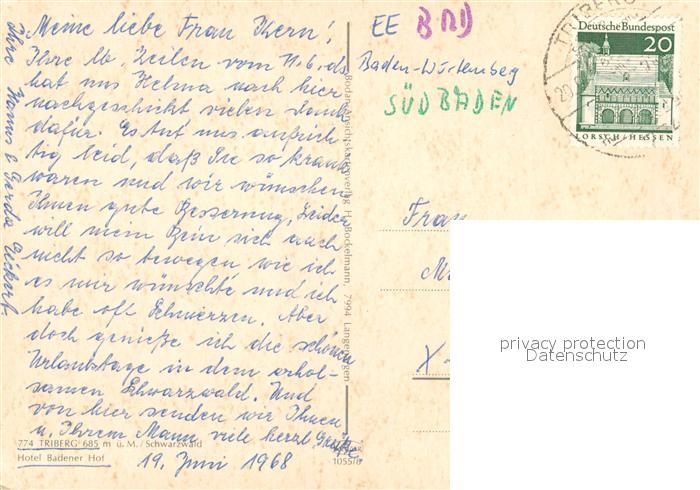 Meine liebe Frau Kern!
Ihre lb. Zeilen vom 11.6. d.
hat uns Helma nach hier
nachgeschickt vielen Dank
dafür. Es tut uns aufrich-
tig leid, daß Sie so krank
waren und wir wünschen
Ihnen gute Besserung. Leider
will mein Bein sich auch
nicht so bewegen wie ich
es mir wünschte und ich
habe oft Schmerzen. Aber
doch genieße ich die schönen
Urlaubstage in dem erhol-
samen Schwarzwald. Und
von hier senden wir Ihnen
u. Ihrem Mann viele herzl. Grüße
Ihre Hanns & Gerda
774 TRIBERG 685 m ü. M./Schwarzwald
Hotel Badener Hof
19. Juni 1968
Bodan-Ansichtskartenverlag H. Bockelmann, 7994 Langenargen
1055/8
EE BRD
Baden-Würtemberg
SÜDBADEN
TRIBERG
20
Deutsche Bundespost
20
LORSCH/HESSEN
Frau
X-
privacy protection
Datenschutz